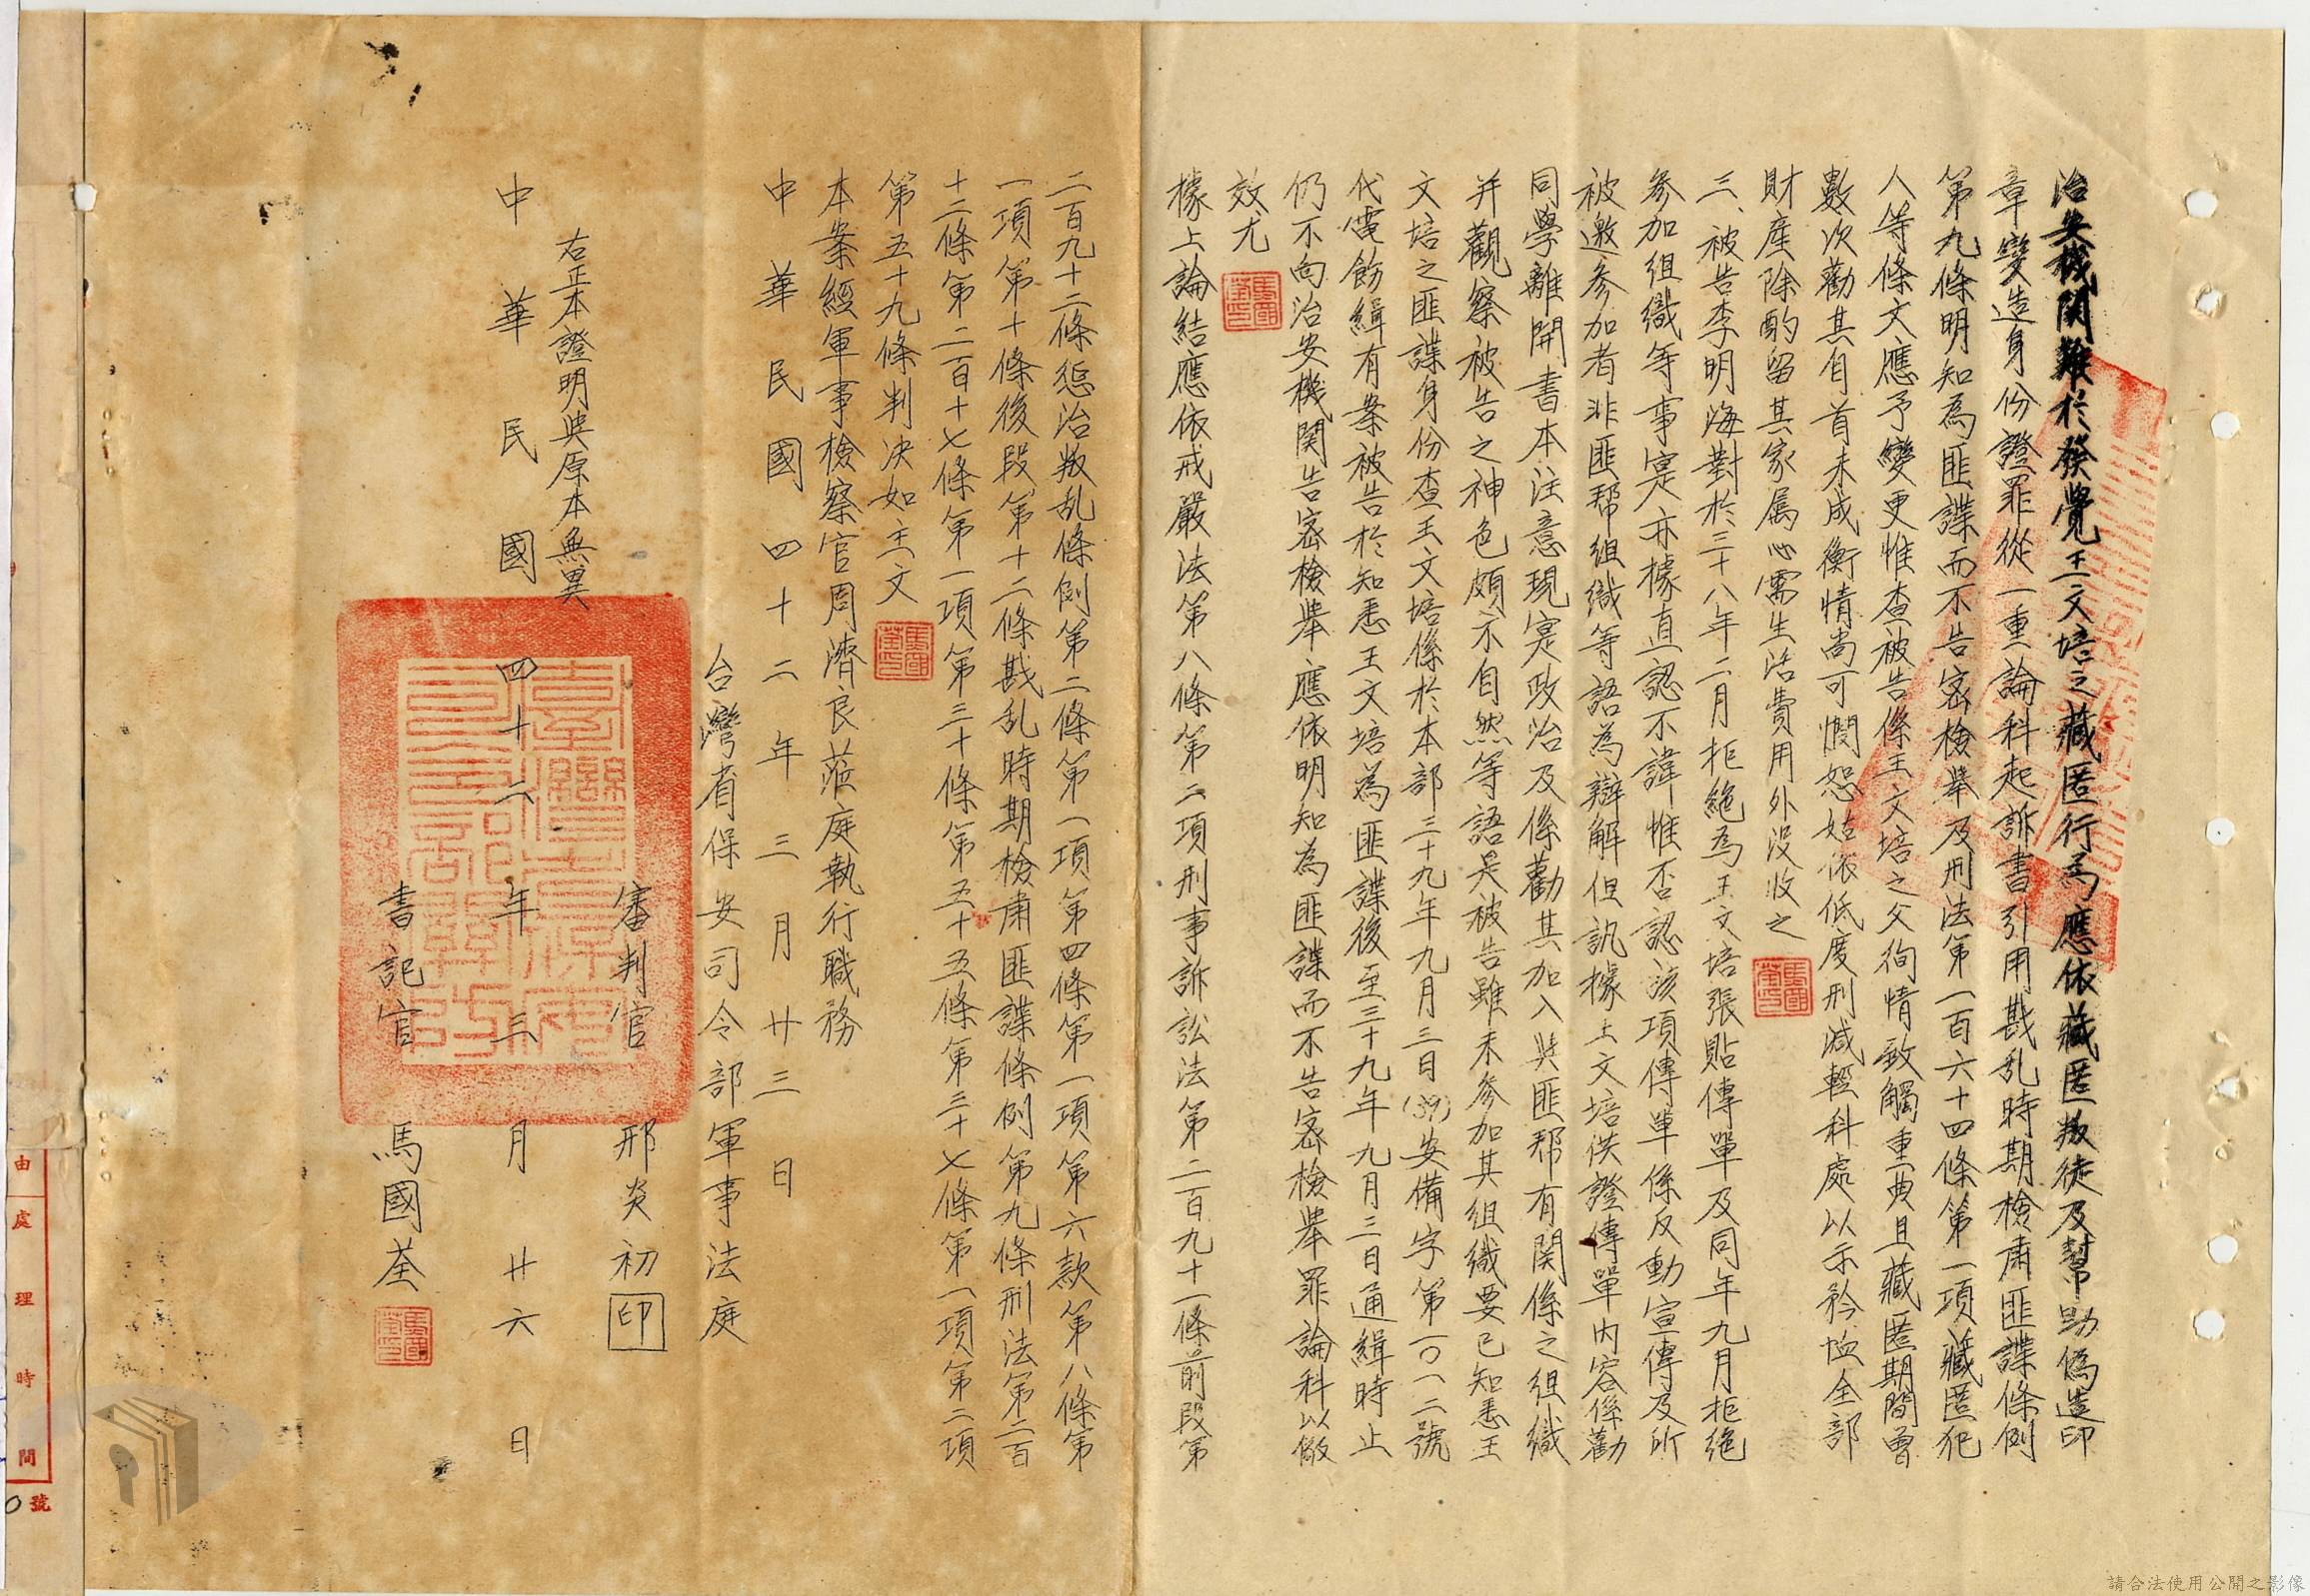 治安機関難於發覺王文培之藏匿行為應依藏匿叛徒及幫助偽造印
章變造身份證罪從一重論科起訴書引用戡乱時期檢肅匪諜條例
第九條明知為匪諜而不告密檢舉及刑法第一百六十四條第一項藏匿犯
人等條文應予變更惟查被告係王文培之父徇情致觸重典且藏匿期間曾
數次勸其自首未成衡情尚可憫恕姑依低度刑減輕科處以示矜恤全部
財產除酌留其家屬必需生活費用外没收之
三、被告李明海對於三十八年二月拒絶為王文培張貼傳單及同年九月拒絶
参加組織等事寔亦據直認不諱惟否認該項傳單係反動宣傳及所
被邀参加者非匪帮組織等語為辯解但訊據王文培供證傳單内容係勸
同學離開書本注意現寔政治及係勸其加入與匪帮有関係之組織
并觀察被告之神色頗不自然等語是被告雖未参加其組織要已知悉王
文培之匪諜身份查王文培係於本部三十九年九月三日(39)安備字第一〇一二號
代電飭緝有案被告於知悉王文培為匪諜後至三十九年九月三日通緝時止
仍不向治安機関告密檢舉應依明知為匪諜而不告密檢舉罪論科以儆
效尤
據上論結應依戒嚴法第八條第二項刑事訴訟法第二百九十一條前段第
二百九十二條懲治叛乱條例第二條第一項第四條第一項第六款第八條第
一項第十條後段第十二條戡乱時期檢肅匪諜條例第九條刑法第二百
十二條第二百十七條第一項第三十條第五十五條第三十七條第一項第二項
第五十九條判決如主文
本案經軍事檢察官周濟良蒞庭執行職務
中華民國四十二年三月廿三日
台灣省保安司令部軍事法庭
審判官 邢炎初 印
右正本證明與原本無異
中華民國四十二年三月廿六日
書記官 馬國荃
由處理時間
號
請合法使用公開之影像